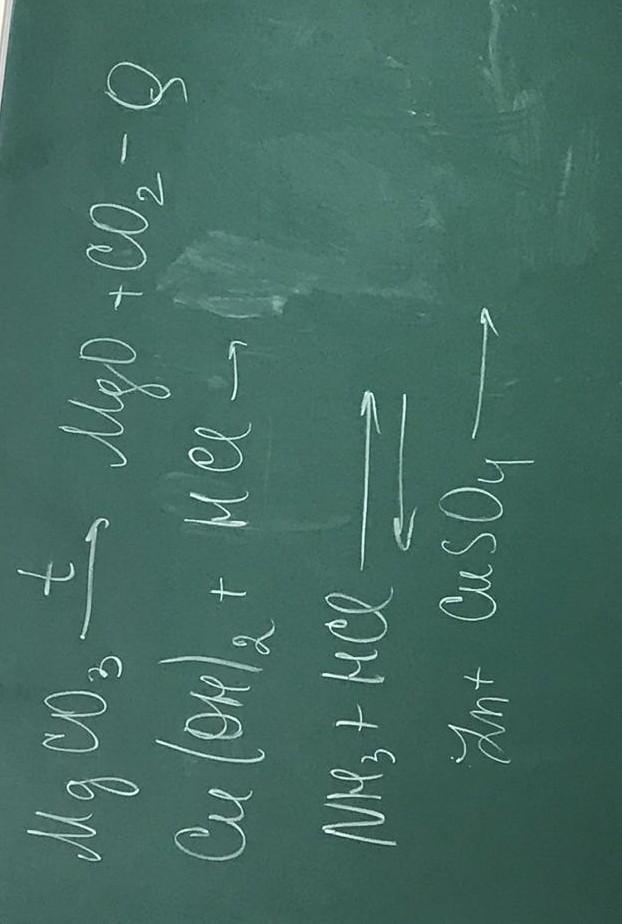 MgCO₃ →ᵗ MgO + CO₂ - Q
Cu(OH)₂ + HCl →
NH₃ + HCl ⇄
Zn + CuSO₄ →